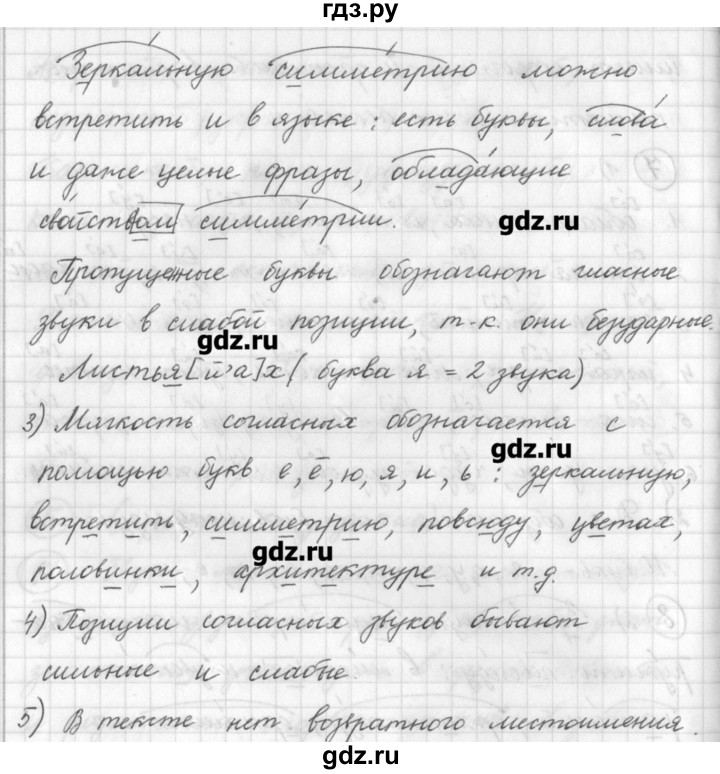 гдз.ру
Зеркальную симметрию можно
встретить и в языке: есть буквы, слова
и даже целые фразы, обладающие
свойством симметрии.
gdz.ru
Пропущенные буквы обозначают гласные
звуки в слабой позиции, т.к. они безударные.
gdz.ru
Листья [й'а]х (буква я = 2 звука)
3) Мягкость согласных обозначается с
gdz.ru
помощью букв е, ё, ю, я, и, ь: зеркальную,
встретить, симметрию, повсюду, цветах,
gdz.ru
половинки, архитектуре и т.д.
4) Позиции согласных звуков бывают
сильные и слабые
5) В тексте нет возвратного местоимения.
gdz.ru